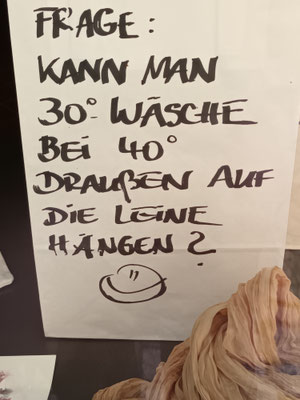 FRAGE:
KANN MAN
30° WÄSCHE
BEI 40°
DRAUßEN AUF
DIE LEINE
HÄNGEN?